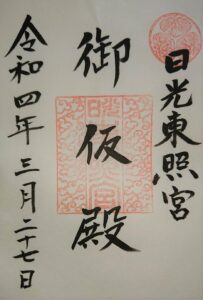 日光東照宮
御仮殿
令和四年三月二十七日